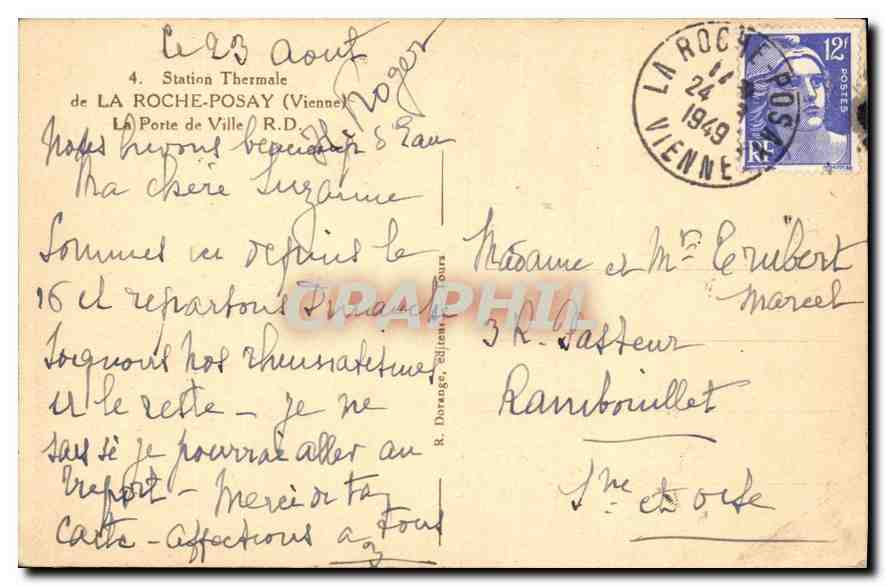 Le 23 Aout
Roger
4. Station Thermale
de LA ROCHE-POSAY (Vienne)
La Porte de Ville R.D.
Nous buvons beaucoup d'Eau
Ma chère Suzanne
Sommes ici depuis le
16 et repartons Dimanche
Soignons nos rhumatismes
et le reste - je ne
sais si je pourrai aller au
Treport - Merci de ta
carte - Affections a Tous
3
R. Dorange, éditeur, Tours
LA ROCHE-POSAY
24
1949
VIENNE
12F
POSTES
RF
Madame et Mr Trubert
Marcel
3 R. Pasteur
Rambouillet
Sne et Oise
CPAPHIL